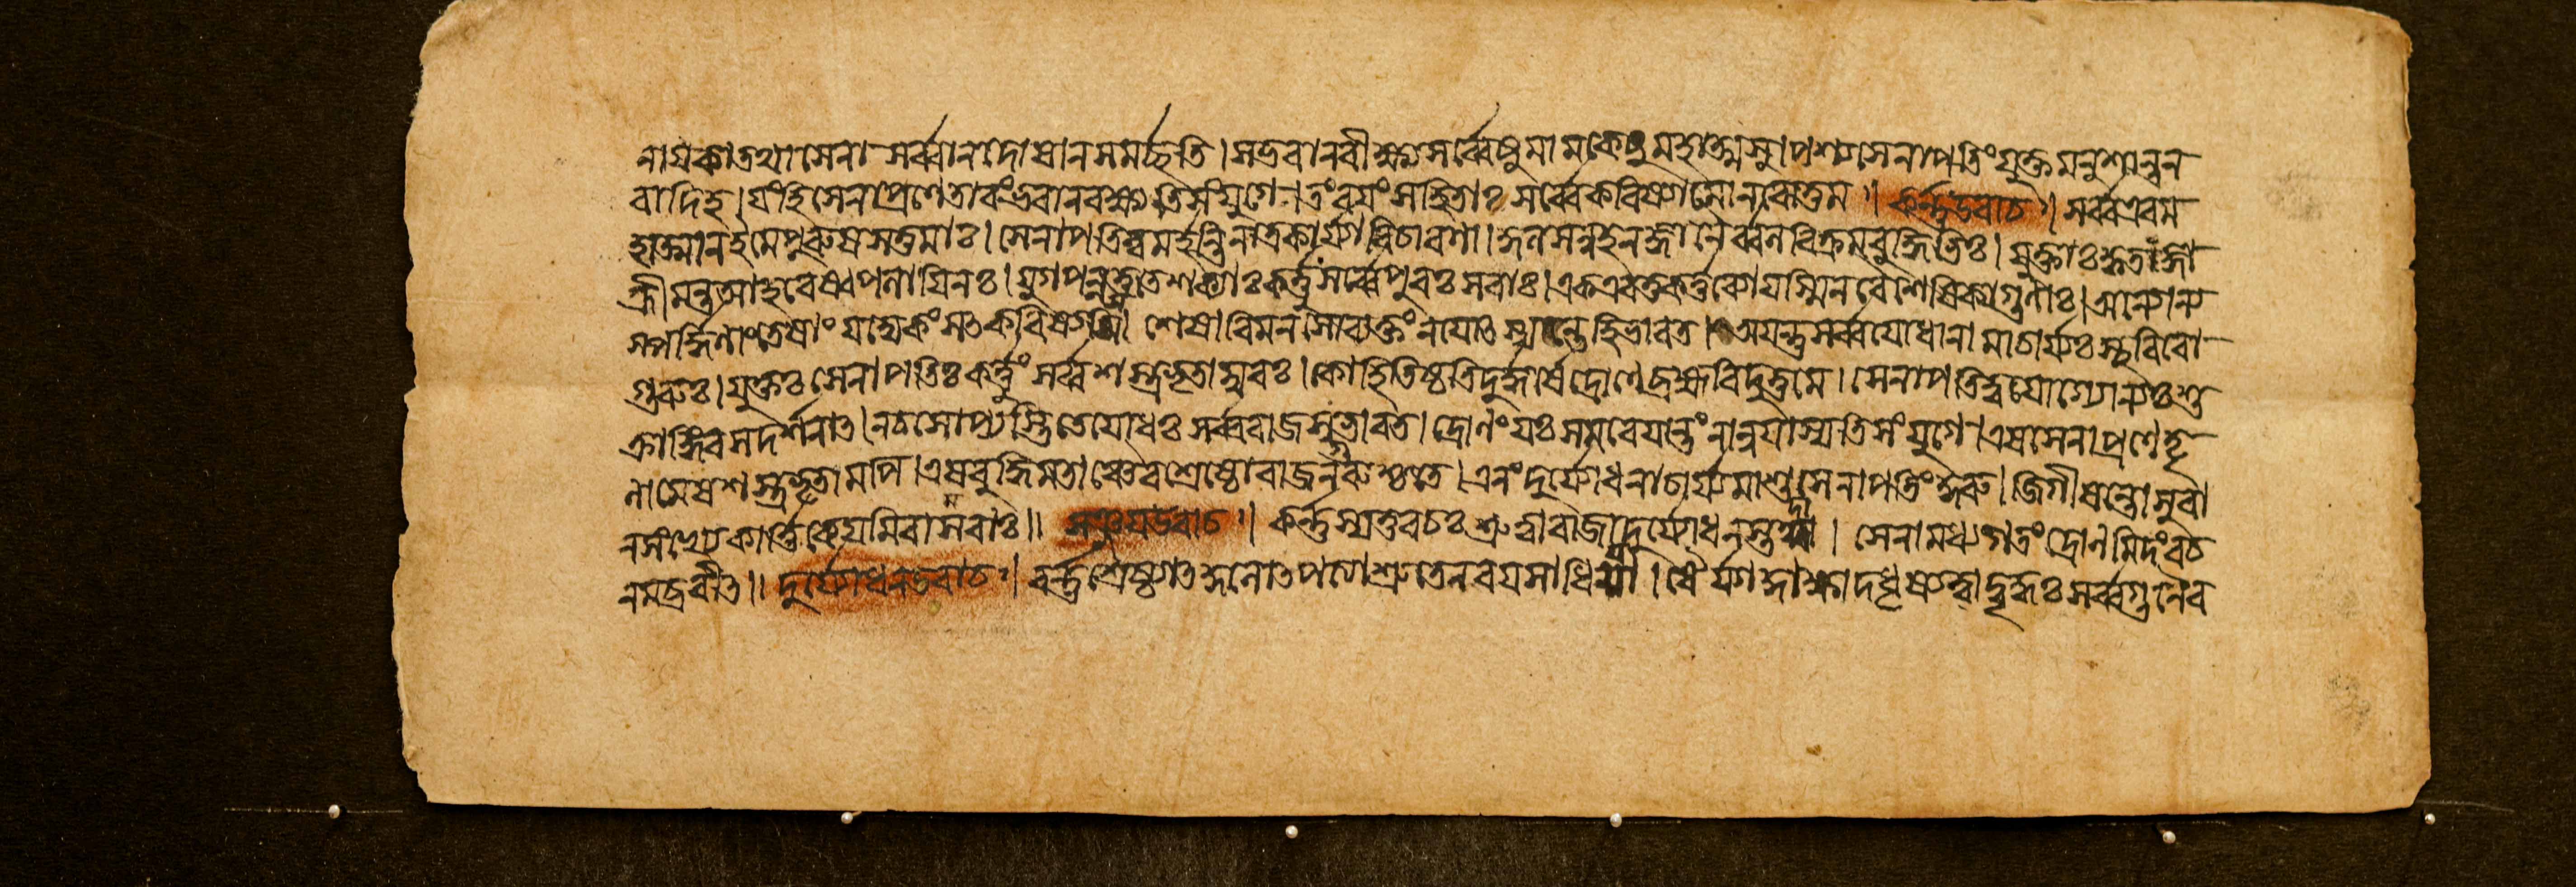 নায়কা তথা সেনা সর্ব্বান দোষান সমর্চ্ছতি । স ভবান বীক্ষ্য সর্ব্বেষু মামকেষু মহাত্মসু । পশ্য সেনাপতিং যুক্তমনু শান্তন
বাদিহ । যং হি সেনাপ্রণেতারং ভবান বক্ষ্যতি সংযুগে । তং বয়ং সহিতাঃ সর্ব্বে করিষ্যামো ন সংশয়ম ॥ কর্ন্ন উবাচ ॥ সর্ব্ব এব ম
হাত্মান ইমে পুরুষসত্তমাঃ । সেনাপতিত্বমর্হন্তি নাত্র কার্য্যা বিচারণা । কুলসংহননজ্ঞানৈর্ব্বলবিক্রমবুদ্ধিভিঃ । যুক্তাঃ কৃতজ্ঞা
হ্রীমন্ত আহবেষ্বপলায়িনঃ । যুগপন্ন তু তে শক্যাঃ কর্ত্তুং সর্ব্বে পুরঃসরাঃ । এক এব তু কর্ত্তব্যো যস্মিন বৈশেষিকা গুণাঃ । অন্যোন্য
স্পর্দ্ধিনাং তেষাং যদ্যেকং সৎকরিষ্যসি । শেষা বিমনসো ব্যক্তং ন যোৎস্যন্তে হি ভারত । অয়ন্তু সর্ব্বযোধানামাচার্য্যঃ স্থবিরো
গুরুঃ । যুক্তঃ সেনাপতিঃ কর্ত্তুং সর্ব্বশস্ত্রভৃতাম্বরঃ । কো হি তিষ্ঠতি দুর্দ্ধর্ষে দ্রোণে ব্রহ্মবিদুত্তমে । সেনাপতিঃ স্যাদন্যোন্যঃ শু
ক্রাঙ্গিরসদর্শনাৎ । ন চ সোপ্যস্তি তে যোধঃ সর্ব্বরাজসু ভারত । দ্রোণং যঃ সমরে যান্তং নানুযাস্যতি সংযুগে । এষ সেনাপ্রণেতৃ
ণামেষ শস্ত্রভৃতামপি । এষ বুদ্ধিমতাঞ্চৈব শ্রেষ্ঠো রাজন গুরুশ্চ তে । এনং দুর্য্যোধনাচার্য্যমাশু সেনাপতিং কুরু । জিগীষন্তোসুরা
ন সংখ্যে কার্ত্তিকেয়মিবামরাঃ ॥ সঞ্জয় উবাচ ॥ কর্ন্নস্য তু বচঃ শ্রুত্বা রাজা দুর্য্যোধনস্তদা । সেনামধ্যগতং দ্রোণমিদং বচ
নমব্রবীৎ ॥ দুর্য্যোধন উবাচ ॥ বর্ন্নশ্রৈষ্ঠ্যাৎ কুলোৎপত্যা শ্রুতেন বয়সা ধিয়া । বীর্য্যাদ্দাক্ষ্যাদধৃষ্যত্বা দৃহঃ সর্ব্বগুণৈর